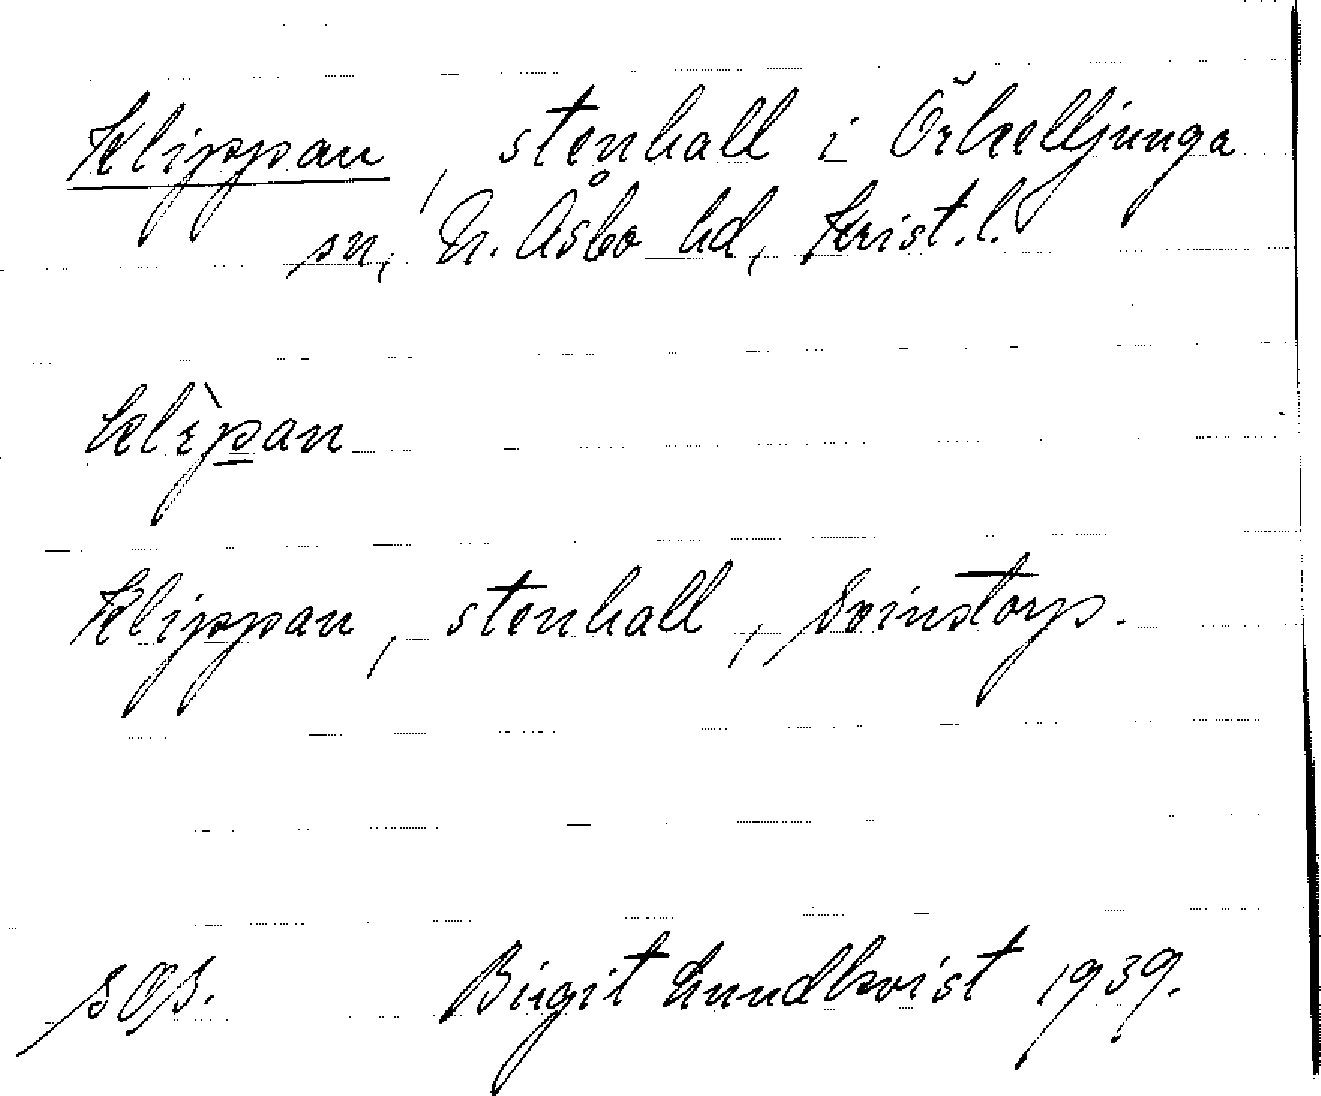 Klippan, stenhall i Örkelljunga
sn, N. Åsbo hd, Krist.l.
klìp̲an
Klippan, stenhall,
Birgit Lundkvist 1939.